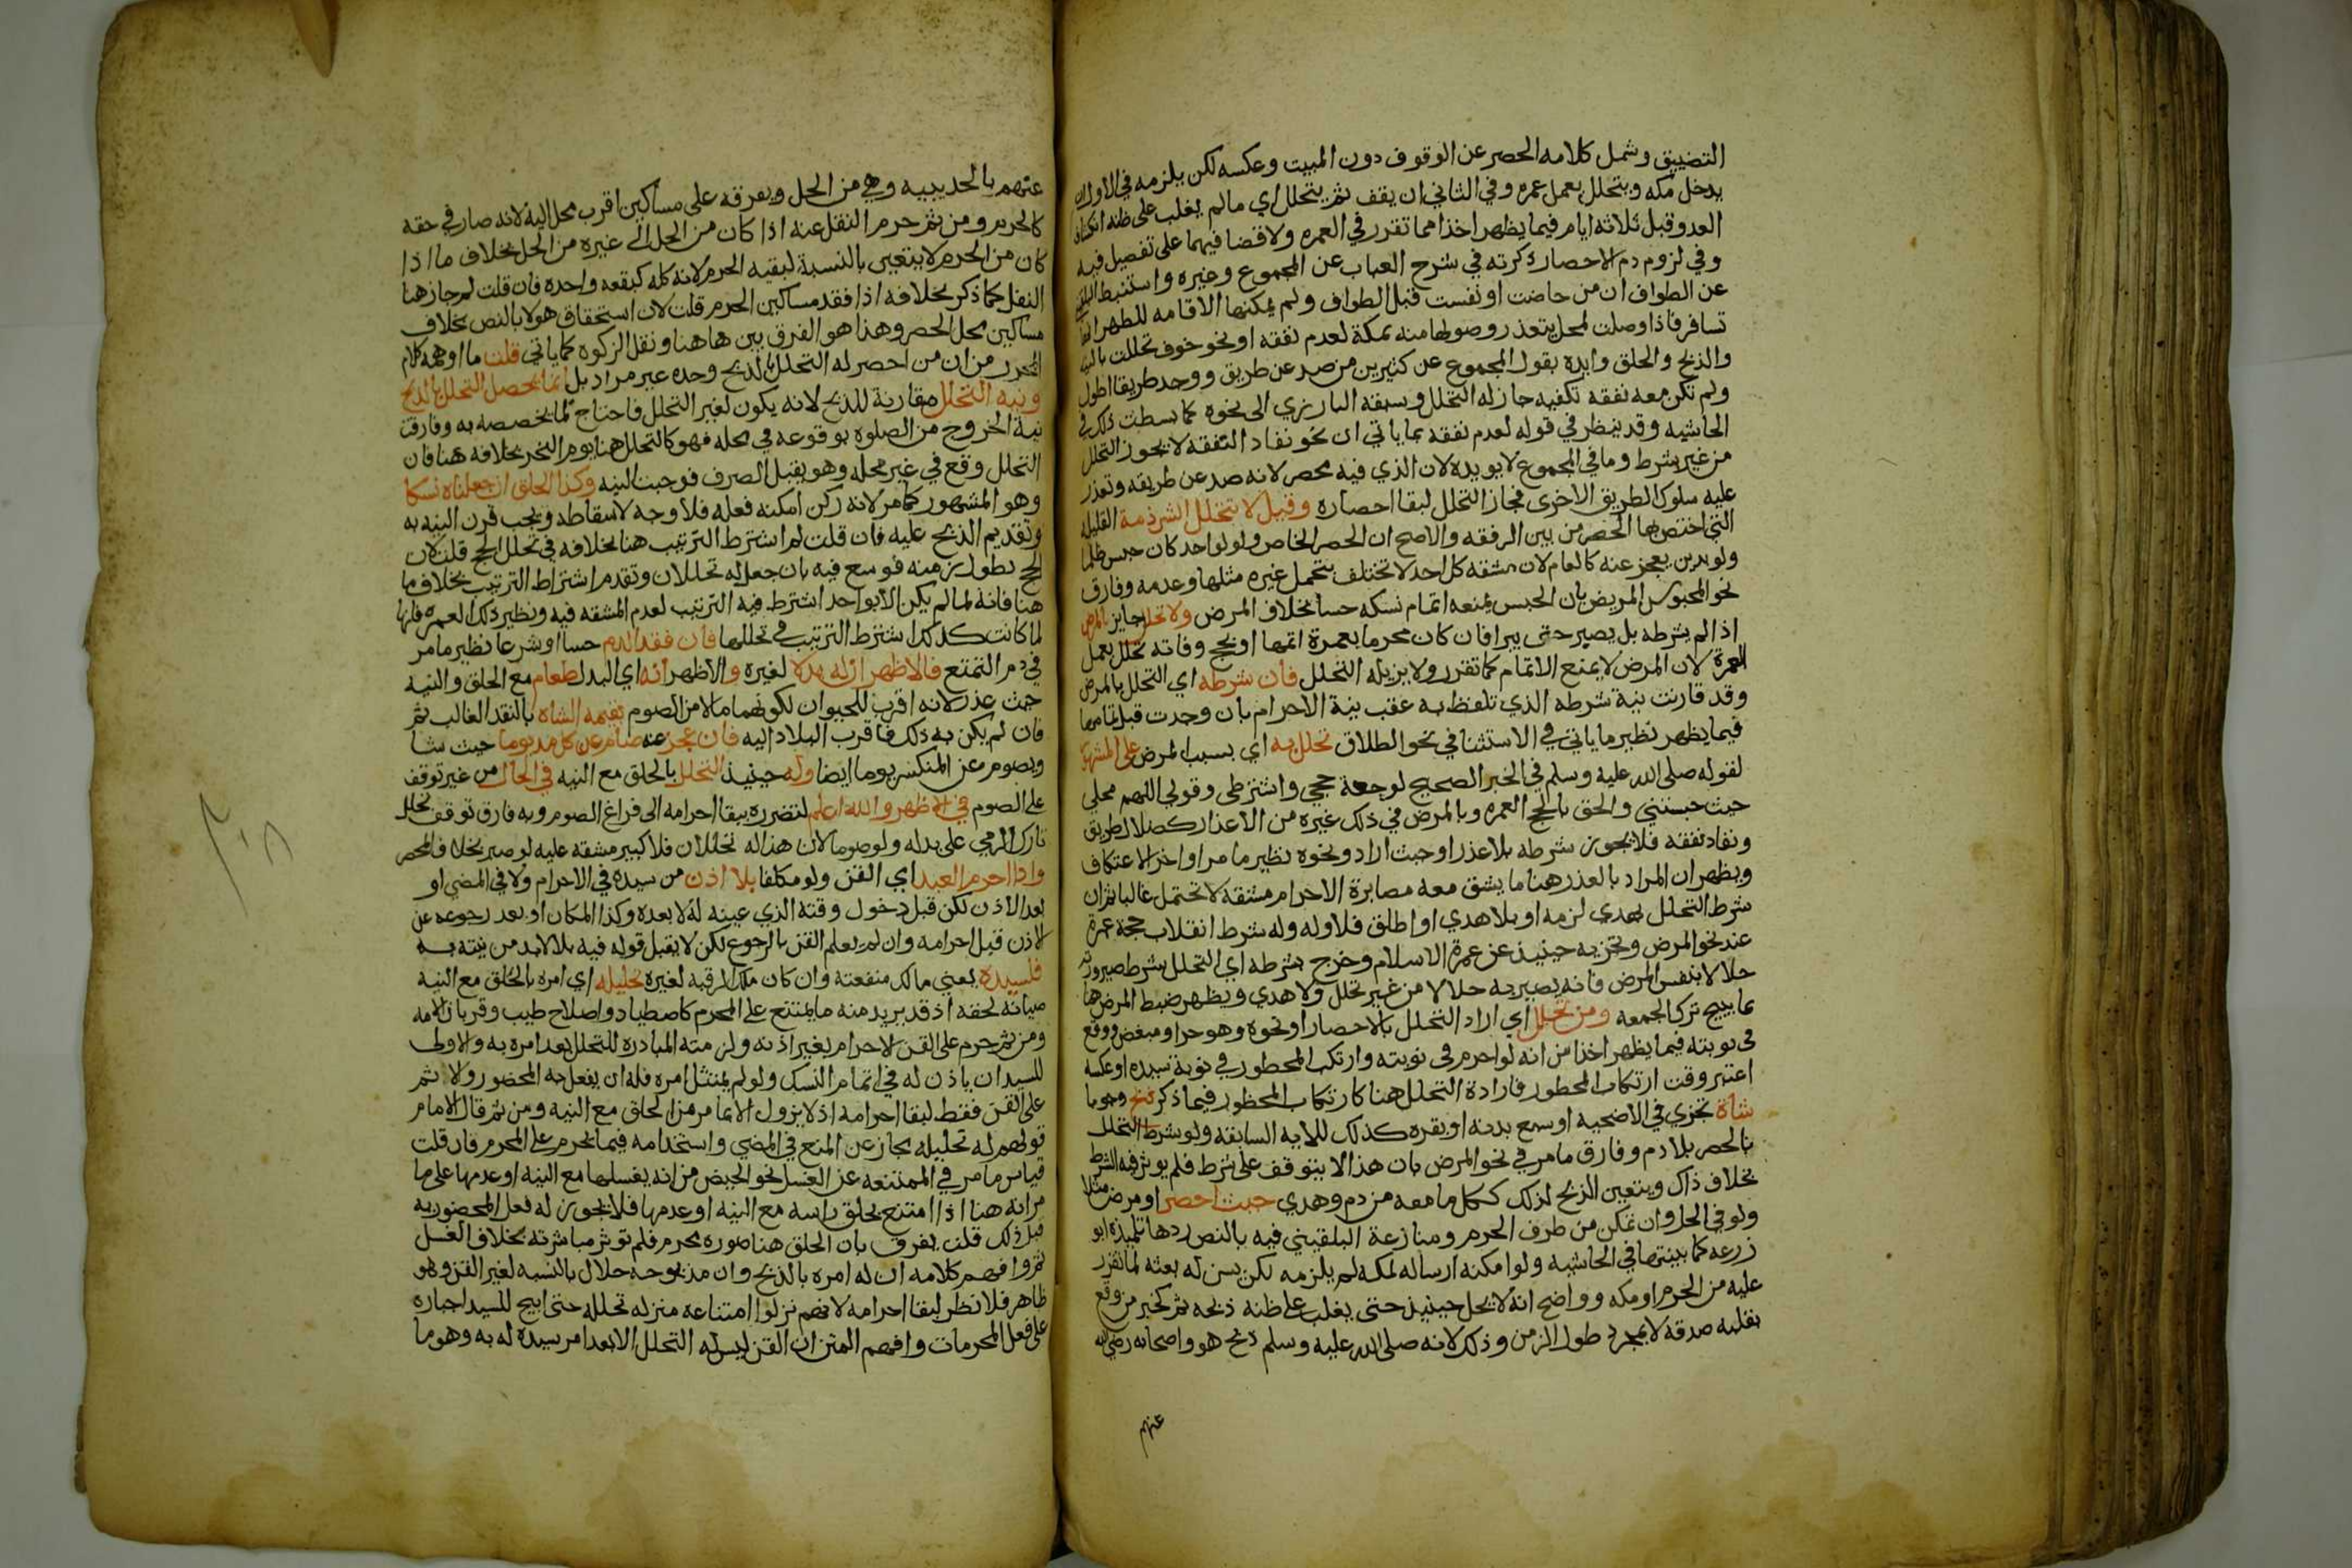 التضييق وشمل كلامه الحصر عن الوقوف دون المبيت وعكسه لكن يلزمه في الاول ان
يدخل مكه ويتحلل بعمل عمره وفي الثاني ان يقف ثم يتحلل اي مالم يغلب على ظنه انكشاف
العدو قبل ثلاثه ايام فيما يظهر اخذا مما تقرر في العمره ولا قضا فيهما على تفصيل فيه
وفي لزوم دم الاحصار ذكرته في شرح العباب عن المجموع وغيره واستنبط البلقيني
عن الطواف ان من حاضت او نفست قبل الطواف ولم يمكنها الاقامه للطهر انها
تسافر فاذا وصلت لمحل يتعذر وصولها منه بمكة لعدم نفقه او نحو خوف تحللت بالنيه
والذبح والحلق وايده بقول المجموع عن كثيرين من صد عن طريق ووجد طريقا اطول
ولم تكن معه نفقه تكفيه جاز له التحلل وسبقه البارزي الى نحوه كما بسطت ذلك في
الحاشيه وقد ينظر في قوله لعدم نفقه بما ياتي ان نحو نفاد النفقه لا يجوز التحلل
من غير شرط وما في المجموع لا يويده لان الذي فيه محصر لانه صد عن طريقه وتعذر
عليه سلوك الطريق الاخرى فجاز التحلل لبقا احصاره وقيل لا تتحلل الشرذمة القليله
التي اختص بها الحصر من بين الرفقه والاصح ان الحصر الخاص ولو لواحد كان حبس ظلما
ولو بدين يعجز عنه كالعام لان مشقه كل احد لا تختلف بتحمل غيره مثلها وعدمه وفارق
نحو المحبوس المريض بان الحبس يمنعه اتمام نسكه حسا بخلاف المرض ولا تحلل جايز بالمرض
اذا لم يشرطه بل يصبر حتى يبرا فان كان محرما بعمرة اتمها او بحج وفاته تحلل بعمل
العمرة لان المرض لا يمنع الاتمام كما تقرر ولا يزيله التحلل فان شرطه اي التحلل بالمرض
وقد قارنت نية شرطه الذي تلفظ به عقب نية الاحرام بان وجدت قبل تمامها
فيما يظهر نظير ما ياتي في الاستثنا في نحو الطلاق تحلل به اي بسبب المرض على المشهور
لقوله صلى الله عليه وسلم في الخبر الصحيح لوجعة حجي واشترطي وقولي اللهم محلي
حيث حبستني والحق بالحج العمره وبالمرض في ذلك غيره من الاعذار كضلال الطريق
ونفاد نفقه فلا يجوز شرطه بلا عذر او حيث اراد ونحوه نظير ما مر اواخر الاعتكاف
ويظهر ان المراد بالعذر هنا ما يشق معه مصابرة الاحرام مشقه لا تحتمل غالبا ثم ان
شرط التحلل بهدي لزمه او بلا هدي او اطلق فلا وله وله شرط انقلاب حجة عمرة
عند نحو المرض وتجزيه حينيذ عن عمرة الاسلام وخرج بشرطه اي التحلل بشرط صيرورته
حلالا بنفس المرض فانه يصير به حلالا من غير تحلل ولا هدي ويظهر ضبط المرض هنا
بما يبيح ترك الجمعه ومن تحلل اي اراد التحلل بالاحصار او نحوه وهو حر او مبعض ووقع
في نوبته فيما يظهر اخذا من انه لو احرم في نوبته وارتكب المحظور في نوبة سيده او عكسه
اعتبر وقت ارتكاب المحظور فارادة التحلل هنا كارتكاب المحظور فيما ذكر ذبح وجوبا
شاة تجزي في الاضحيه او سبع بدنه او بقره كذلك للايه السابقه ولو شرط التحلل
بالحصر بلا دم وفارق ما مر في نحو المرض بان هذا لا يتوقف على شرط فلم يوثر فيه الشرط
بخلاف ذاك ويتعين الذبح لذلك ككل ما معه من دم وهدي حيث احصر او مرض مثلا
ولو في الحل وان تمكن من طرف الحرم ومنازعة البلقيني فيه بالنص ردها تلميذه ابو
زرعه كما بينتها في الحاشيه ولو امكنه ارساله لمكه لم يلزمه لكن يسن له بعثه لما تقرر
عليه من الحرم او مكه وواضح انه لا يحل حينيذ حتى يغلب على ظنه ذبحه ثم كخبر من وقع
بقلبه صدقه لا بمجرد طول الزمن وذلك لانه صلى الله عليه وسلم ذبح هو واصحابه رضي الله
عنهم
عنهم بالحديبيه وهي من الحل ويفرقه على مساكين اقرب محل اليه لانه صار في حقه
كالحرم ومن ثم حرم النقل عنه اذا كان من الحل الى غيره من الحل بخلاف ما اذا
كان من الحرم لا يتعين بالنسبة لبقيه الحرم لانه كله كبقعه واحده فان قلت لم جاز هنا
النقل كما ذكر بخلافه اذا فقد مساكين الحرم قلت لان استحقاق هولا بالنص بخلاف
مساكين محل الحصر وهذا هو الفرق بين ها هنا ونقل الزكوه كما ياتي قلت ما اوهمه كلام
المحرر من ان من احصر له التحلل بالذبح وحده غير مراد بل انما يحصل التحلل بالذبح
ونيه التحلل مقارنة للذبح لانه يكون لغير التحلل فاحتاج لما يخصصه به وفارق
نية الخروج من الصلوه بوقوعه في محله فهو كالتحلل هنا يوم النحر بخلافه هنا فان
التحلل وقع في غير محله وهو يقبل الصرف فوجبت النيه وكذا الحلق ان جعلناه نسكا
وهو المشهور كما مر لانه ركن امكنه فعله فلا وجه لاسقاطه ويجب قرن النيه به
وتقديم الذبح عليه فان قلت لم اشترط الترتيب هنا بخلافه في تحلل الحج قلت لان
الحج يطول زمنه فوسع فيه بان جعل له تحللان وتقدم اشتراط الترتيب بخلاف ما
هنا فانه لما لم يكن الا بواحد اشترط فيه الترتيب لعدم المشقه فيه ونظير ذلك العمره فانها
لما كانت كذلك اشترط الترتيب في تحللها فان فقد الدم حسا او شرعا نظير ما مر
في دم التمتع فالاظهر ان له بدلا لغيره والاظهر انه اي البدل طعام مع الحلق والنيه
حيث عذر لانه اقرب للحيوان لكونهما مالا من الصوم بقيمه الشاة بالنقد الغالب ثم
فان لم يكن به ذلك فاقرب البلاد اليه فان عجز عنه صام عن كل مد يوما حيث شا
ويصوم عن المنكسر يوما ايضا وله حينيذ التحلل بالحلق مع النيه في الحال من غير توقف
على الصوم في الاظهر والله اعلم لتضرره ببقا احرامه الى فراغ الصوم وبه فارق توقف تحلل
تارك الرمي على بدله ولو صوما لان هذا له تحللان فلا كبير مشقه عليه لو صبر بخلاف المحصر
واذا احرم العبد اي القن ولو مكلفا بلا اذن من سيده في الاحرام ولا في المضي او
بعد الاذن لكن قبل دخول وقته الذي عينه له لا بعده وكذا المكان او بعد رجوعه عن
الاذن قبل احرامه وان لم يعلم القن بالرجوع لكن لا يقبل قوله فيه بل لا بد من بينته به
فلسيده يعني مالك منفعته وان كان ملك الرقبه لغيره تحليله اي امره بالحلق مع النيه
صيانه لحقه اذ قد يريد منه ما يمتنع على المحرم كاصطياد واصلاح طيب وقربان الامه
ومن ثم حرم على القن الاحرام بغير اذنه ولزمته المبادره للتحلل بعد امره به والاولى
للسيد ان ياذن له في اتمام النسك ولو لم يمتثل امره فله ان يفعل به المحضور ولا اثم
على القن فقط لبقا احرامه اذ لا يزول الا بما مر من الحلق مع النيه ومن ثم قال الامام
قولهم له تحليله مجاز عن المنع في المضي واستخدامه فيما يحرم على المحرم فان قلت
قياس ما مر في الممتنعه عن الغسل لنحو الحيض من انه يغسلها مع النيه او عدمها على ما
مر انه هنا اذا امتنع يحلق راسه مع النيه او عدمها فلا يجوز له فعل المحضور به
قبل ذلك قلت يفرق بان الحلق هنا صوره محرم فلم توثر مباشرته بخلاف الغسل
ثم وافهم كلامه ان له امره بالذبح وان مذبوحه حلال بالنسبه لغير القن وهو
ظاهر فلا نظر لبقا احرامه لانهم نزلوا امتناعه منزله تحلله حتى ابيح للسيد اجباره
على فعل المحرمات وافهم المتن ان القن ليس له التحلل الا بعد امر سيده له به وهو ما